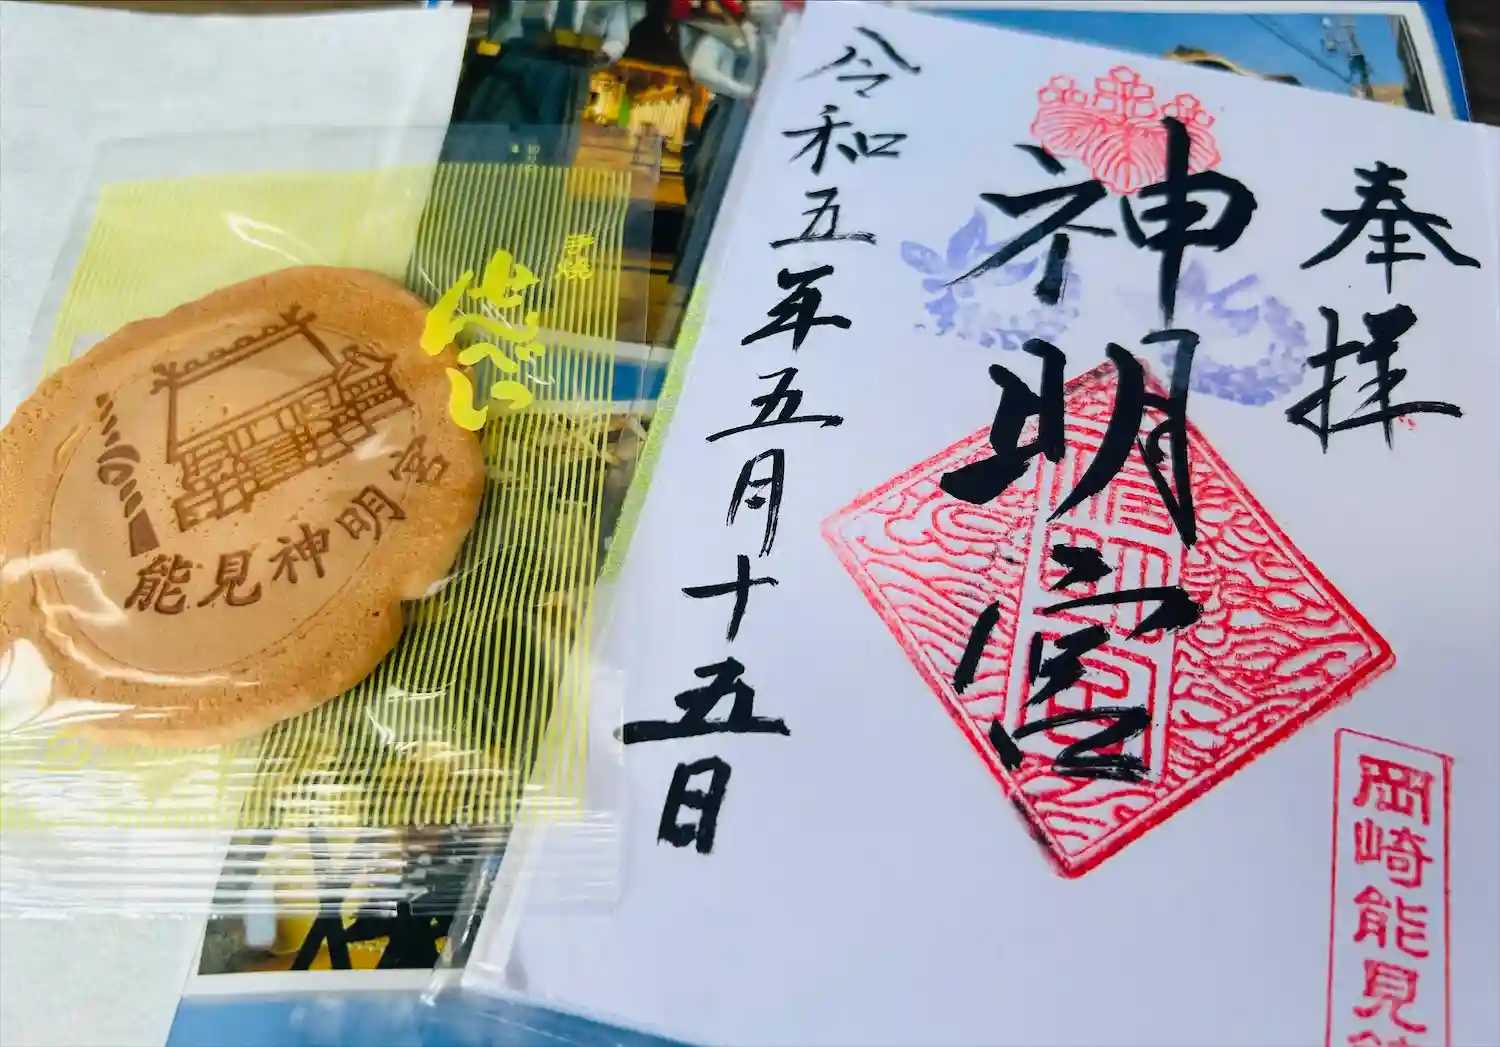 奉拝
神明宮
令和五年五月十五日
岡崎能見
手焼
せんべい
能見神明宮